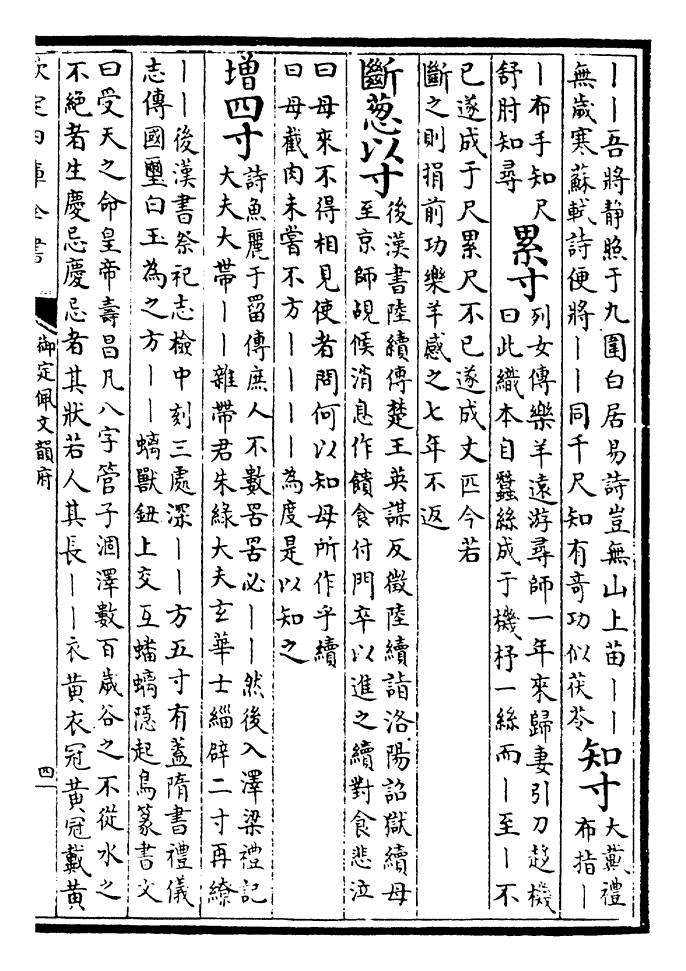 丨丨吾將靜照于九圍白居易詩豈無山上苗丨丨
無歲寒蘇軾詩便將丨丨同千尺知有奇功似茯苓
知寸
大戴禮
布指丨
丨布手知尺
舒肘知尋
累寸
列女傳樂羊遠游尋師一年來歸妻引刀趍機
曰此織本自蠶絲成于機杼一絲而丨至丨不
已遂成于尺累尺不已遂成丈匹今若
斷之則捐前功樂羊感之七年不返
斷葱以寸
後漢書陸續傳楚王英謀反徵陸續詣洛陽詔獄續母
至京師覘候消息作饋食付門卒以進之續對食悲泣
曰母來不得相見使者問何以知母所作乎續
曰母截肉未嘗不方丨丨丨丨為度是以知之
增四寸
詩魚麗于罶傳庶人不數罟罟必丨丨然後入澤梁禮記
大夫大帶丨丨雜帶君朱綠大夫玄華士緇辟二寸再繚
丨丨後漢書祭祀志檢中刻三處深丨丨方五寸有蓋隋書禮儀
志傳國璽白玉為之方丨丨螭獸鈕上交互蟠螭隱起鳥篆書文
曰受天之命皇帝壽昌凡八字管子涸澤數百歲谷之不從水之
不絕者生慶忌慶忌者其狀若人其長丨丨衣黃衣冠黃冠戴黃
欽定四庫全書
御定佩文韻府
四